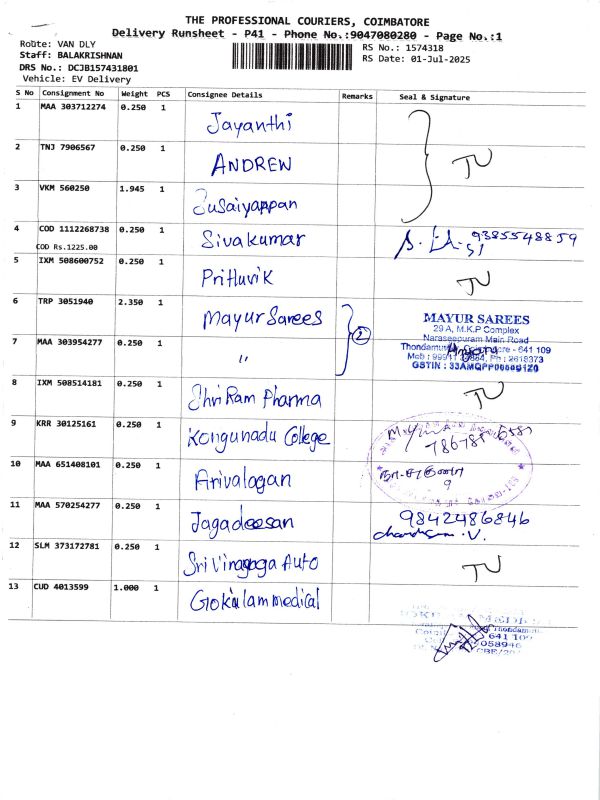 THE PROFESSIONAL COURIERS, COIMBATORE
Delivery Runsheet - P41 - Phone No.:9047080280 - Page No.:1
Route: VAN DLY
Staff: BALAKRISHNAN
DRS No.: DCJB157431801
Vehicle: EV Delivery
RS No.: 1574318
RS Date: 01-Jul-2025
S No Consignment No Weight PCS Consignee Details Remarks Seal & Signature
1 MAA 303712274 0.250 1 Jayanthi
2 TNJ 7906567 0.250 1 ANDREW TU
3 VKM 560250 1.945 1 Susaiyappan
4 COD 1112268738 0.250 1 Sivakumar 9385548859
COD Rs.1225.00
5 IXM 508600752 0.250 1 Prithvik TU
6 TRP 3051940 2.350 1 Mayur Sarees 2
MAYUR SAREES
29 A, M.K.P Complex
Naraseepuram Main Road
7 MAA 303954277 0.250 1 "
641 109
Ph : 2618373
GSTIN :
8 IXM 508514181 0.250 1 Shri Ram Pharma TU
9 KRR 30125161 0.250 1 Kongunadu College
10 MAA 651408101 0.250 1 Arivalagan
11 MAA 570254277 0.250 1 Jagadeesan 9842486846
12 SLM 373172781 0.250 1 Sri Vinayaga Auto TU
13 CUD 4013599 1.000 1 Gokulam medical
641 109
058946